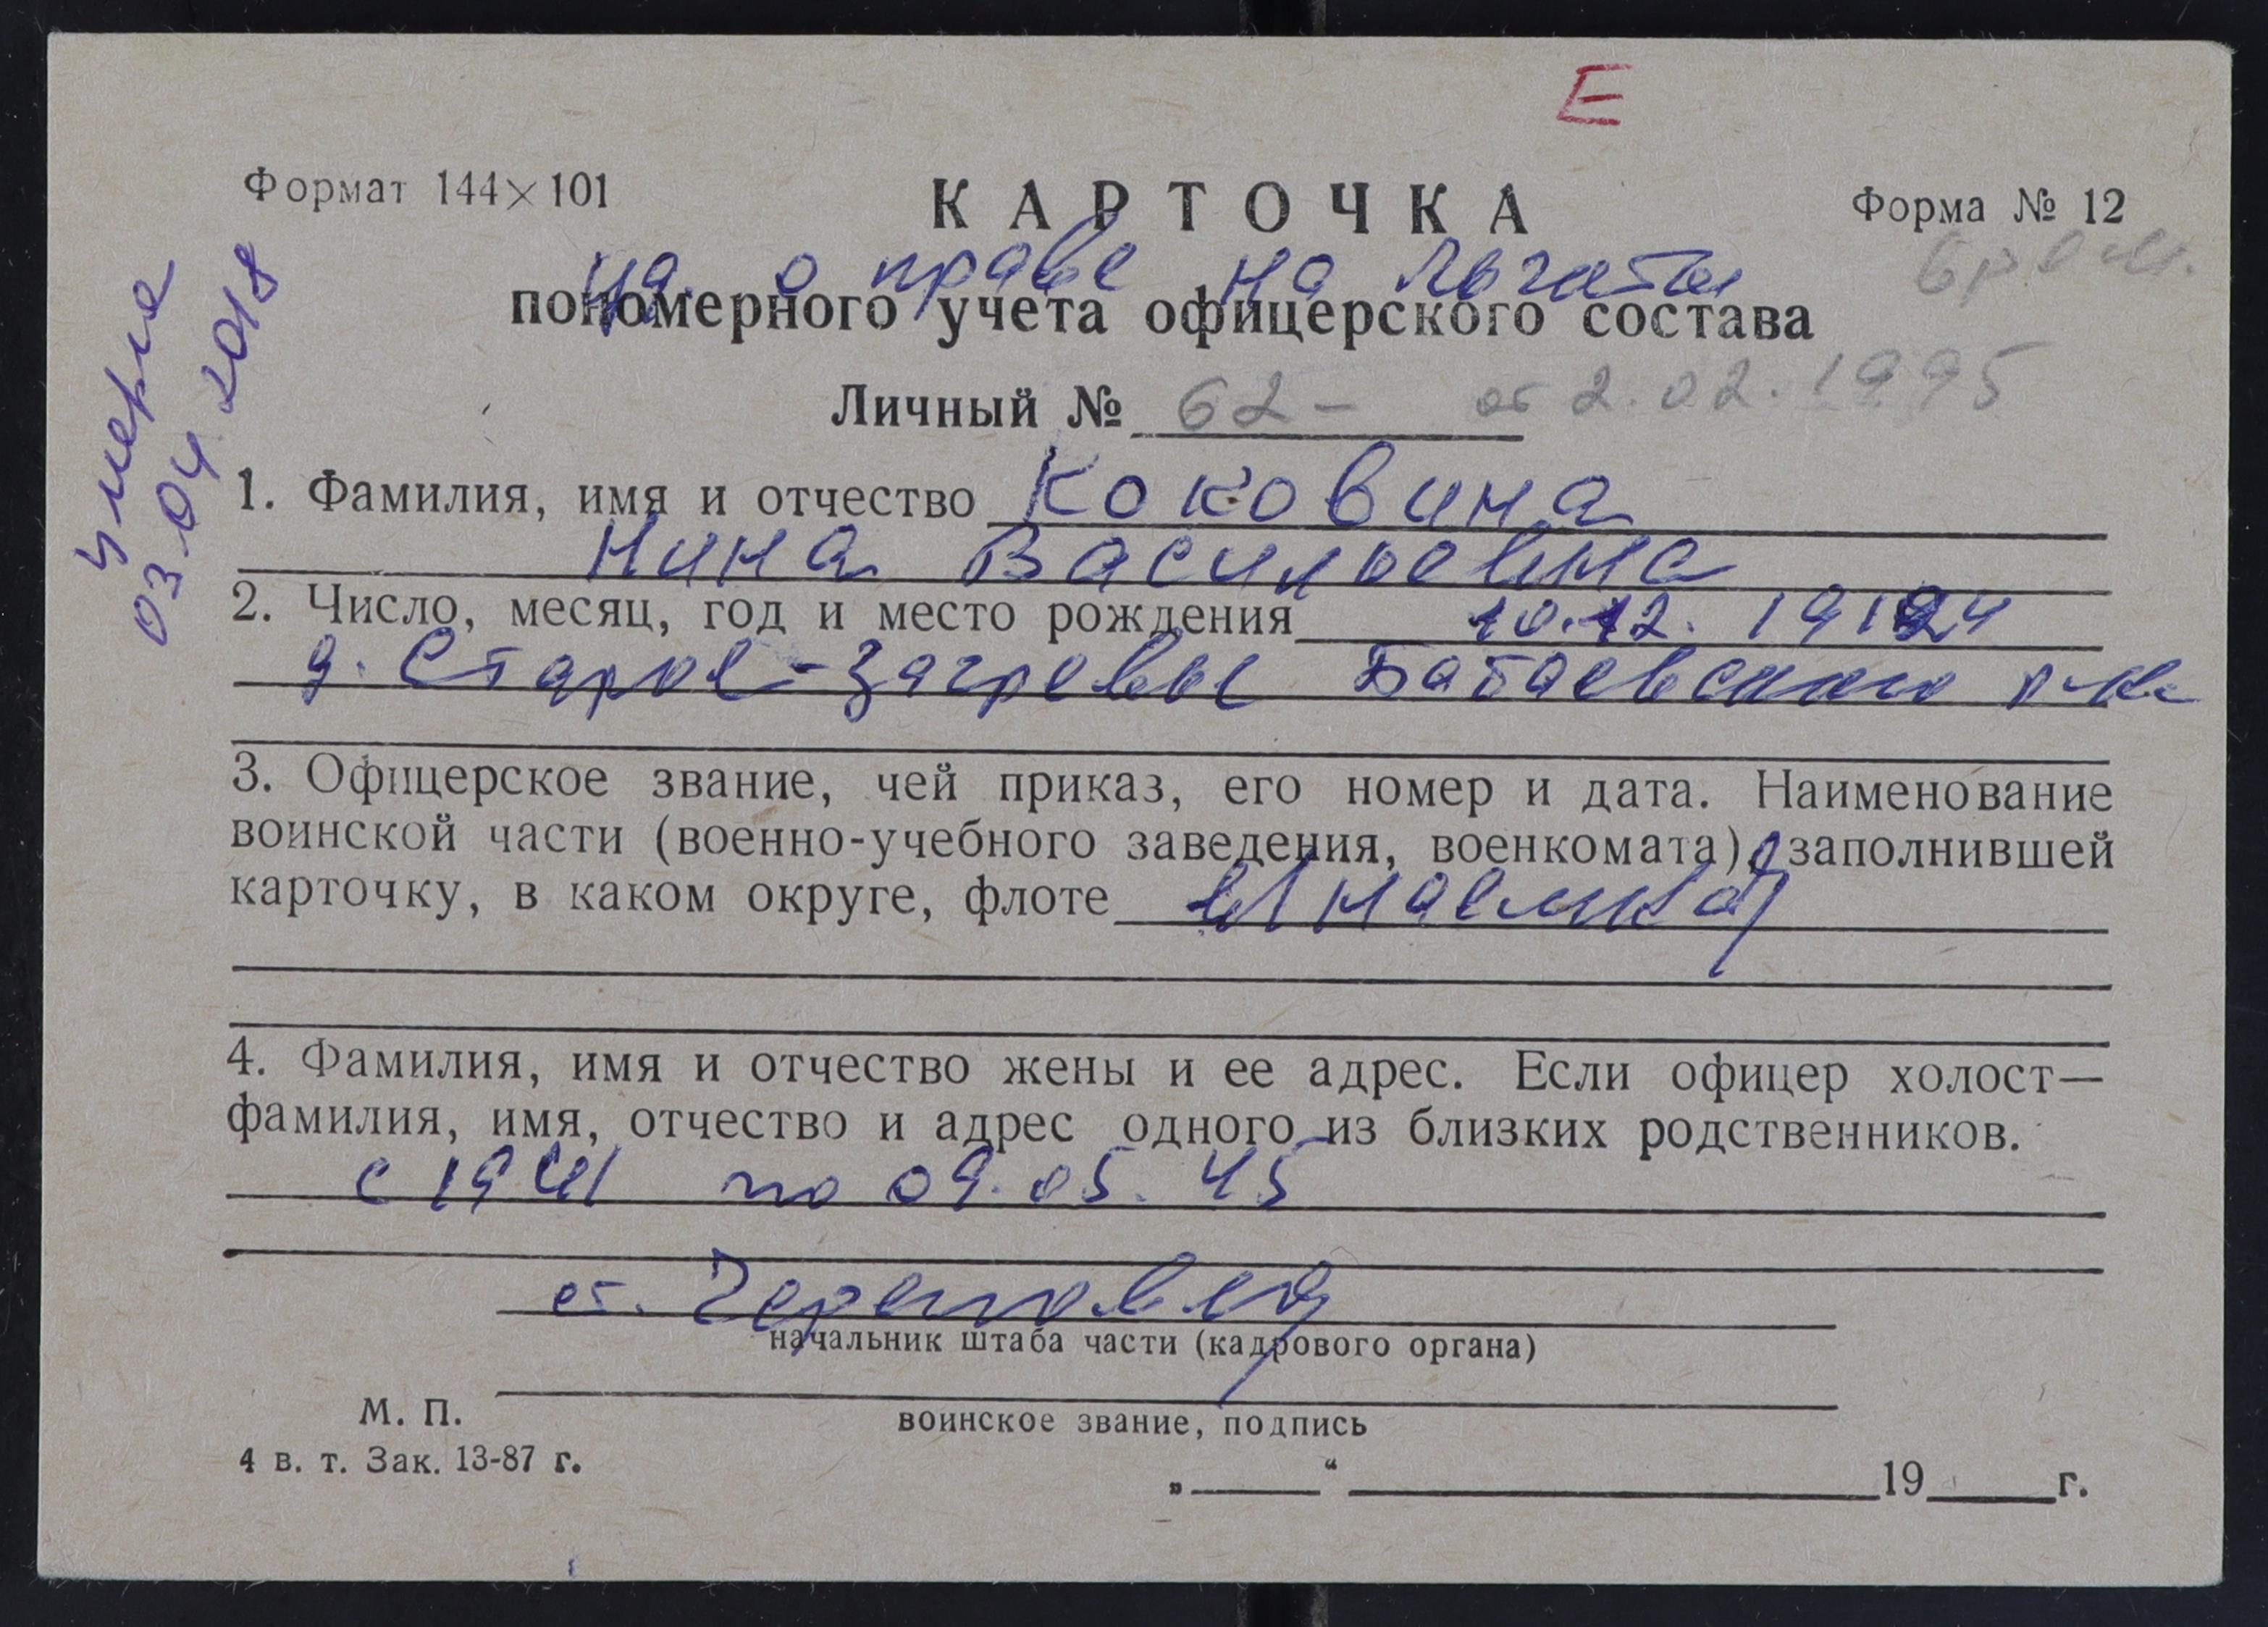 Е
Формат 144×101
КАРТОЧКА
Форма № 12
уд. о праве на льготы
пономерного учета офицерского состава
Личный № 62- от 2.02.1995
умерла
03.04.2018
1. Фамилия, имя и отчество Коковина
Нина Васильевна
2. Число, месяц, год и место рождения 10.12. 1924
д. Старое-Загревье Бабаевского р-на
3. Офицерское звание, чей приказ, его номер и дата. Наименование
воинской части (военно-учебного заведения, военкомата), заполнившей
карточку, в каком округе, флоте в/наемная
4. Фамилия, имя и отчество жены и ее адрес. Если офицер холост—
фамилия, имя, отчество и адрес одного из близких родственников.
с 1941 по 09.05.45
ст. Череповец
начальник штаба части (кадрового органа)
М. П.
воинское звание, подпись
4 в. т. Зак. 13-87 г.
„ “ 19 г.